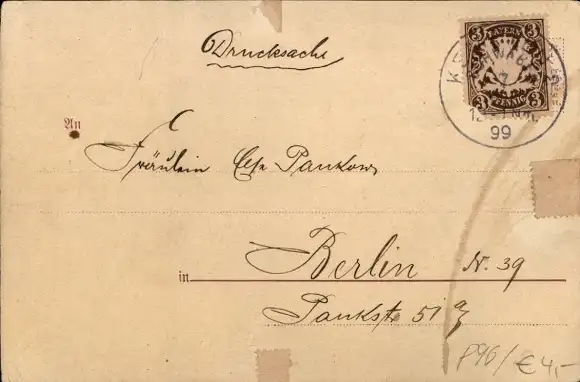 Drucksache
3 BAYERN 3
3 PFENNIG 3
99
An
Fräulein Else Pankow
Berlin N. 39
in
Pankstr. 51 a
P96/ € 4,-